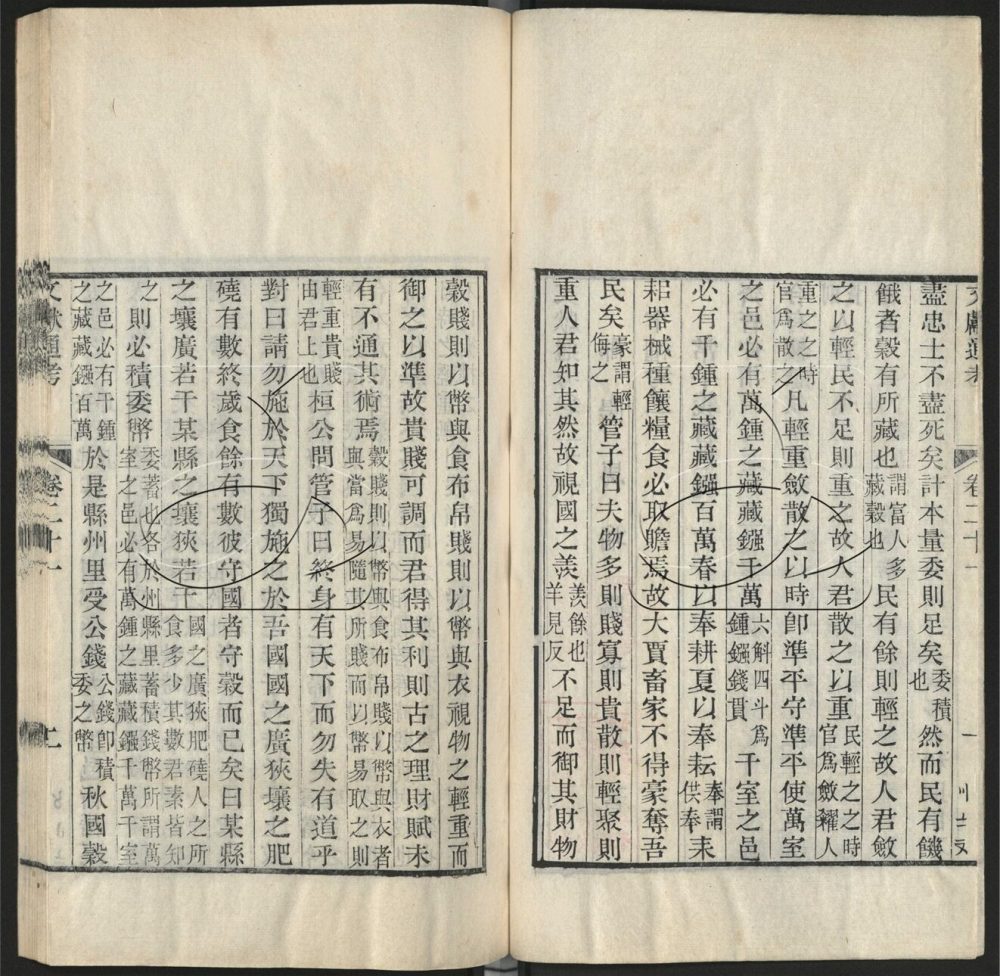 文獻通考 卷二十一 一
盡忠士不盡死矣計本量委則足矣委積也然而民有饑
餓者穀有所藏也謂富人多藏穀也民有餘則輕之故人君斂
之以輕民不足則重之故人君散之以重民輕之之時官爲斂糴人
重之之時官爲散之凡輕重斂散之以時卽準平守準平使萬室
之邑必有萬鍾之藏藏鏹千萬六斛四斗爲鍾鏹錢貫千室之邑
必有千鍾之藏藏鏹百萬春以奉耕夏以奉耘奉謂供奉耒
耜器械種饟糧食必取贍焉故大賈畜家不得豪奪吾
民矣豪謂輕侮之管子曰夫物多則賤寡則貴散則輕聚則
重人君知其然故視國之羨羨餘也羊見反不足而御其財物
穀賤則以幣與食布帛賤則以幣與衣視物之輕重而
御之以準故貴賤可調而君得其利則古之理財賦未
有不通其術焉穀賤則以幣與食布帛賤以幣與衣者與當爲易隨其所賤而以幣易取之則
輕重貴賤由君上也桓公問管子曰終身有天下而勿失有道乎
對曰請勿施於天下獨施之於吾國國之廣狹壤之肥
磽有數終歲食餘有數彼守國者守穀而已矣曰某縣
之壤廣若干某縣之壤狹若干國之廣狹肥磽人之所食多少其數君素皆知
之則必積委幣委蓄也各於州縣里蓄積錢幣所謂萬室之邑必有萬鍾之藏藏鏹千萬千室
之邑必有千鍾之藏藏鏹百萬於是縣州里受公錢公錢卽積委之幣秋國穀
文獻通考 卷二十一